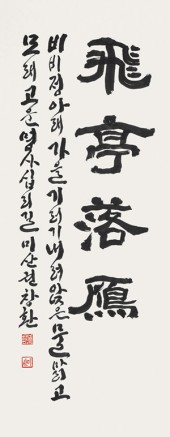 飛亭落鴈
비비정아래 가을기러기 내려앉은 물 맑고
모래 고운 명사십리길 미산 현창환